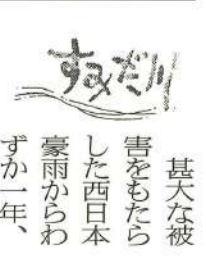 すみだ川
甚大な被
害をもたら
した西日本
豪雨からわ
ずか一年、